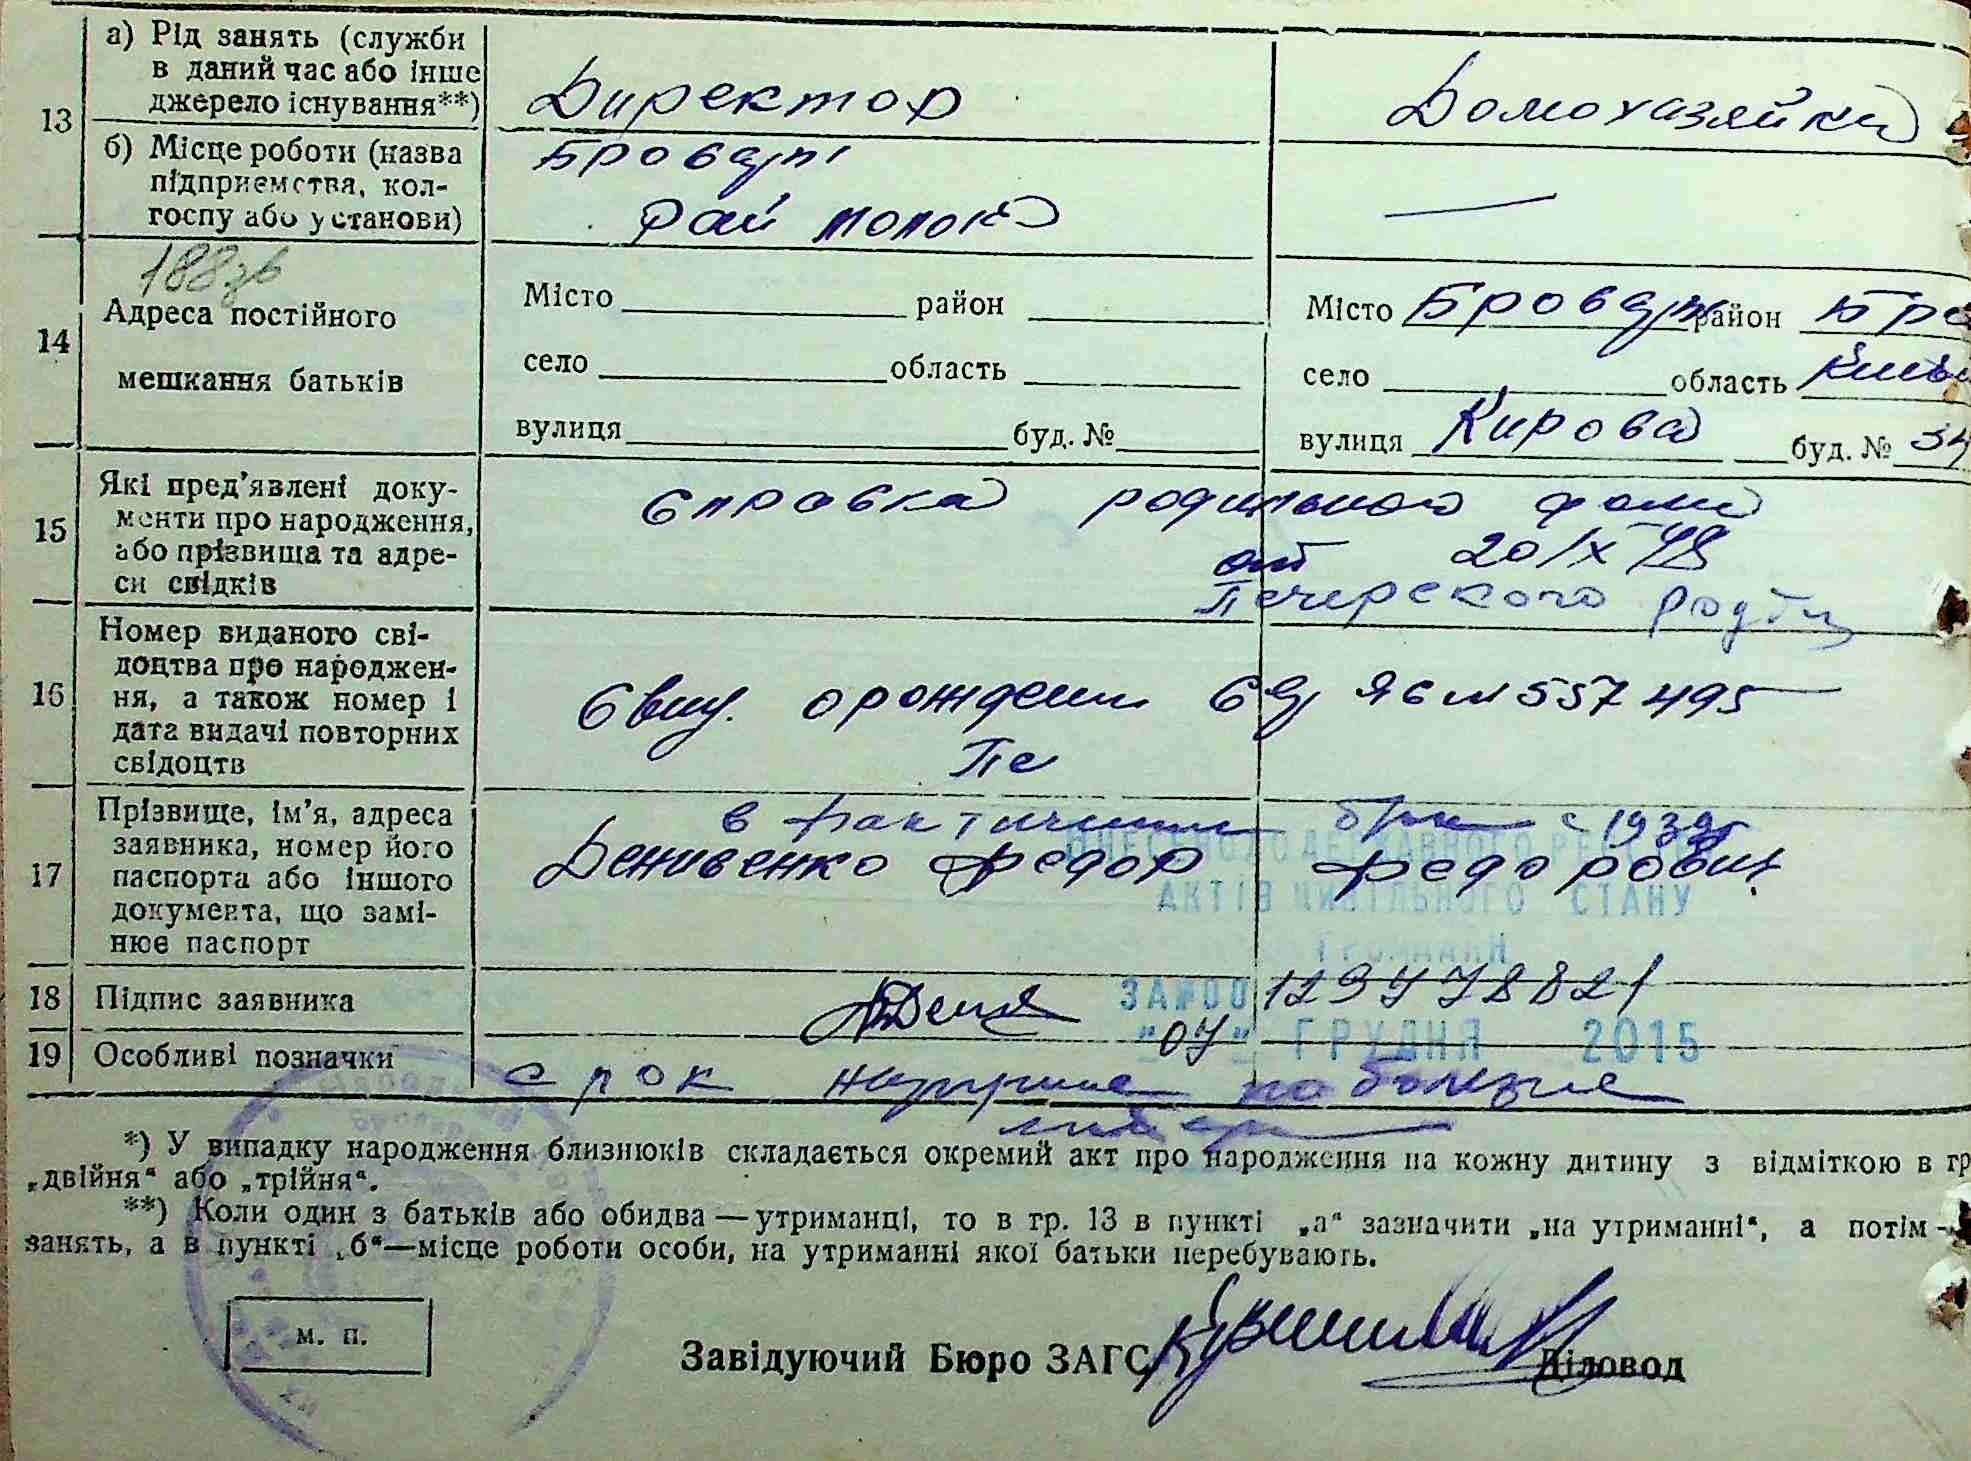 13
а) Рід занять (служби
в даний час або інше
джерело існування**)
Директор
Домохазяйка
б) Місце роботи (назва
підприємства, кол-
госпу або установи)
Бровары
рай
—
14
188
Адреса постійного
мешкання батьків
Місто район
село область
вулиця буд. №
Місто Бровары район Бро
село область Київ
вулиця Кирова буд. № 34
15
Які пред'явлені доку-
менти про народження,
або прізвища та адре-
си свідків
Справка родильного дома
от 20/X 48
Печерского
16
Номер виданого сві-
доцтва про народжен-
ня, а також номер і
дата видачі повторних
свідоцтв
о рождении 557495
17
Прізвище, ім'я, адреса
заявника, номер його
паспорта або іншого
документа, що замі-
нює паспорт
в фактичном с 1939
Федор Федорович
ВНЕСЕНО ДО ДЕРЖАВНОГО РЕЄСТРУ
АКТІВ ЦИВІЛЬНОГО СТАНУ
ГРОМАДЯН
18
Підпис заявника
ЗА №00
"04" ГРУДНЯ 2015
19
Особливі позначки
срок по болезни
матери
*) У випадку народження близнюків складається окремий акт про народження на кожну дитину з відміткою в гр
„двійня“ або „трійня“.
**) Коли один з батьків або обидва — утриманці, то в гр. 13 в пункті „а“ зазначити „на утриманні“, а потім -
занять, а в пункті „б“—місце роботи особи, на утриманні якої батьки перебувають.
м. п.
Завідуючий Бюро ЗАГС
Діловод